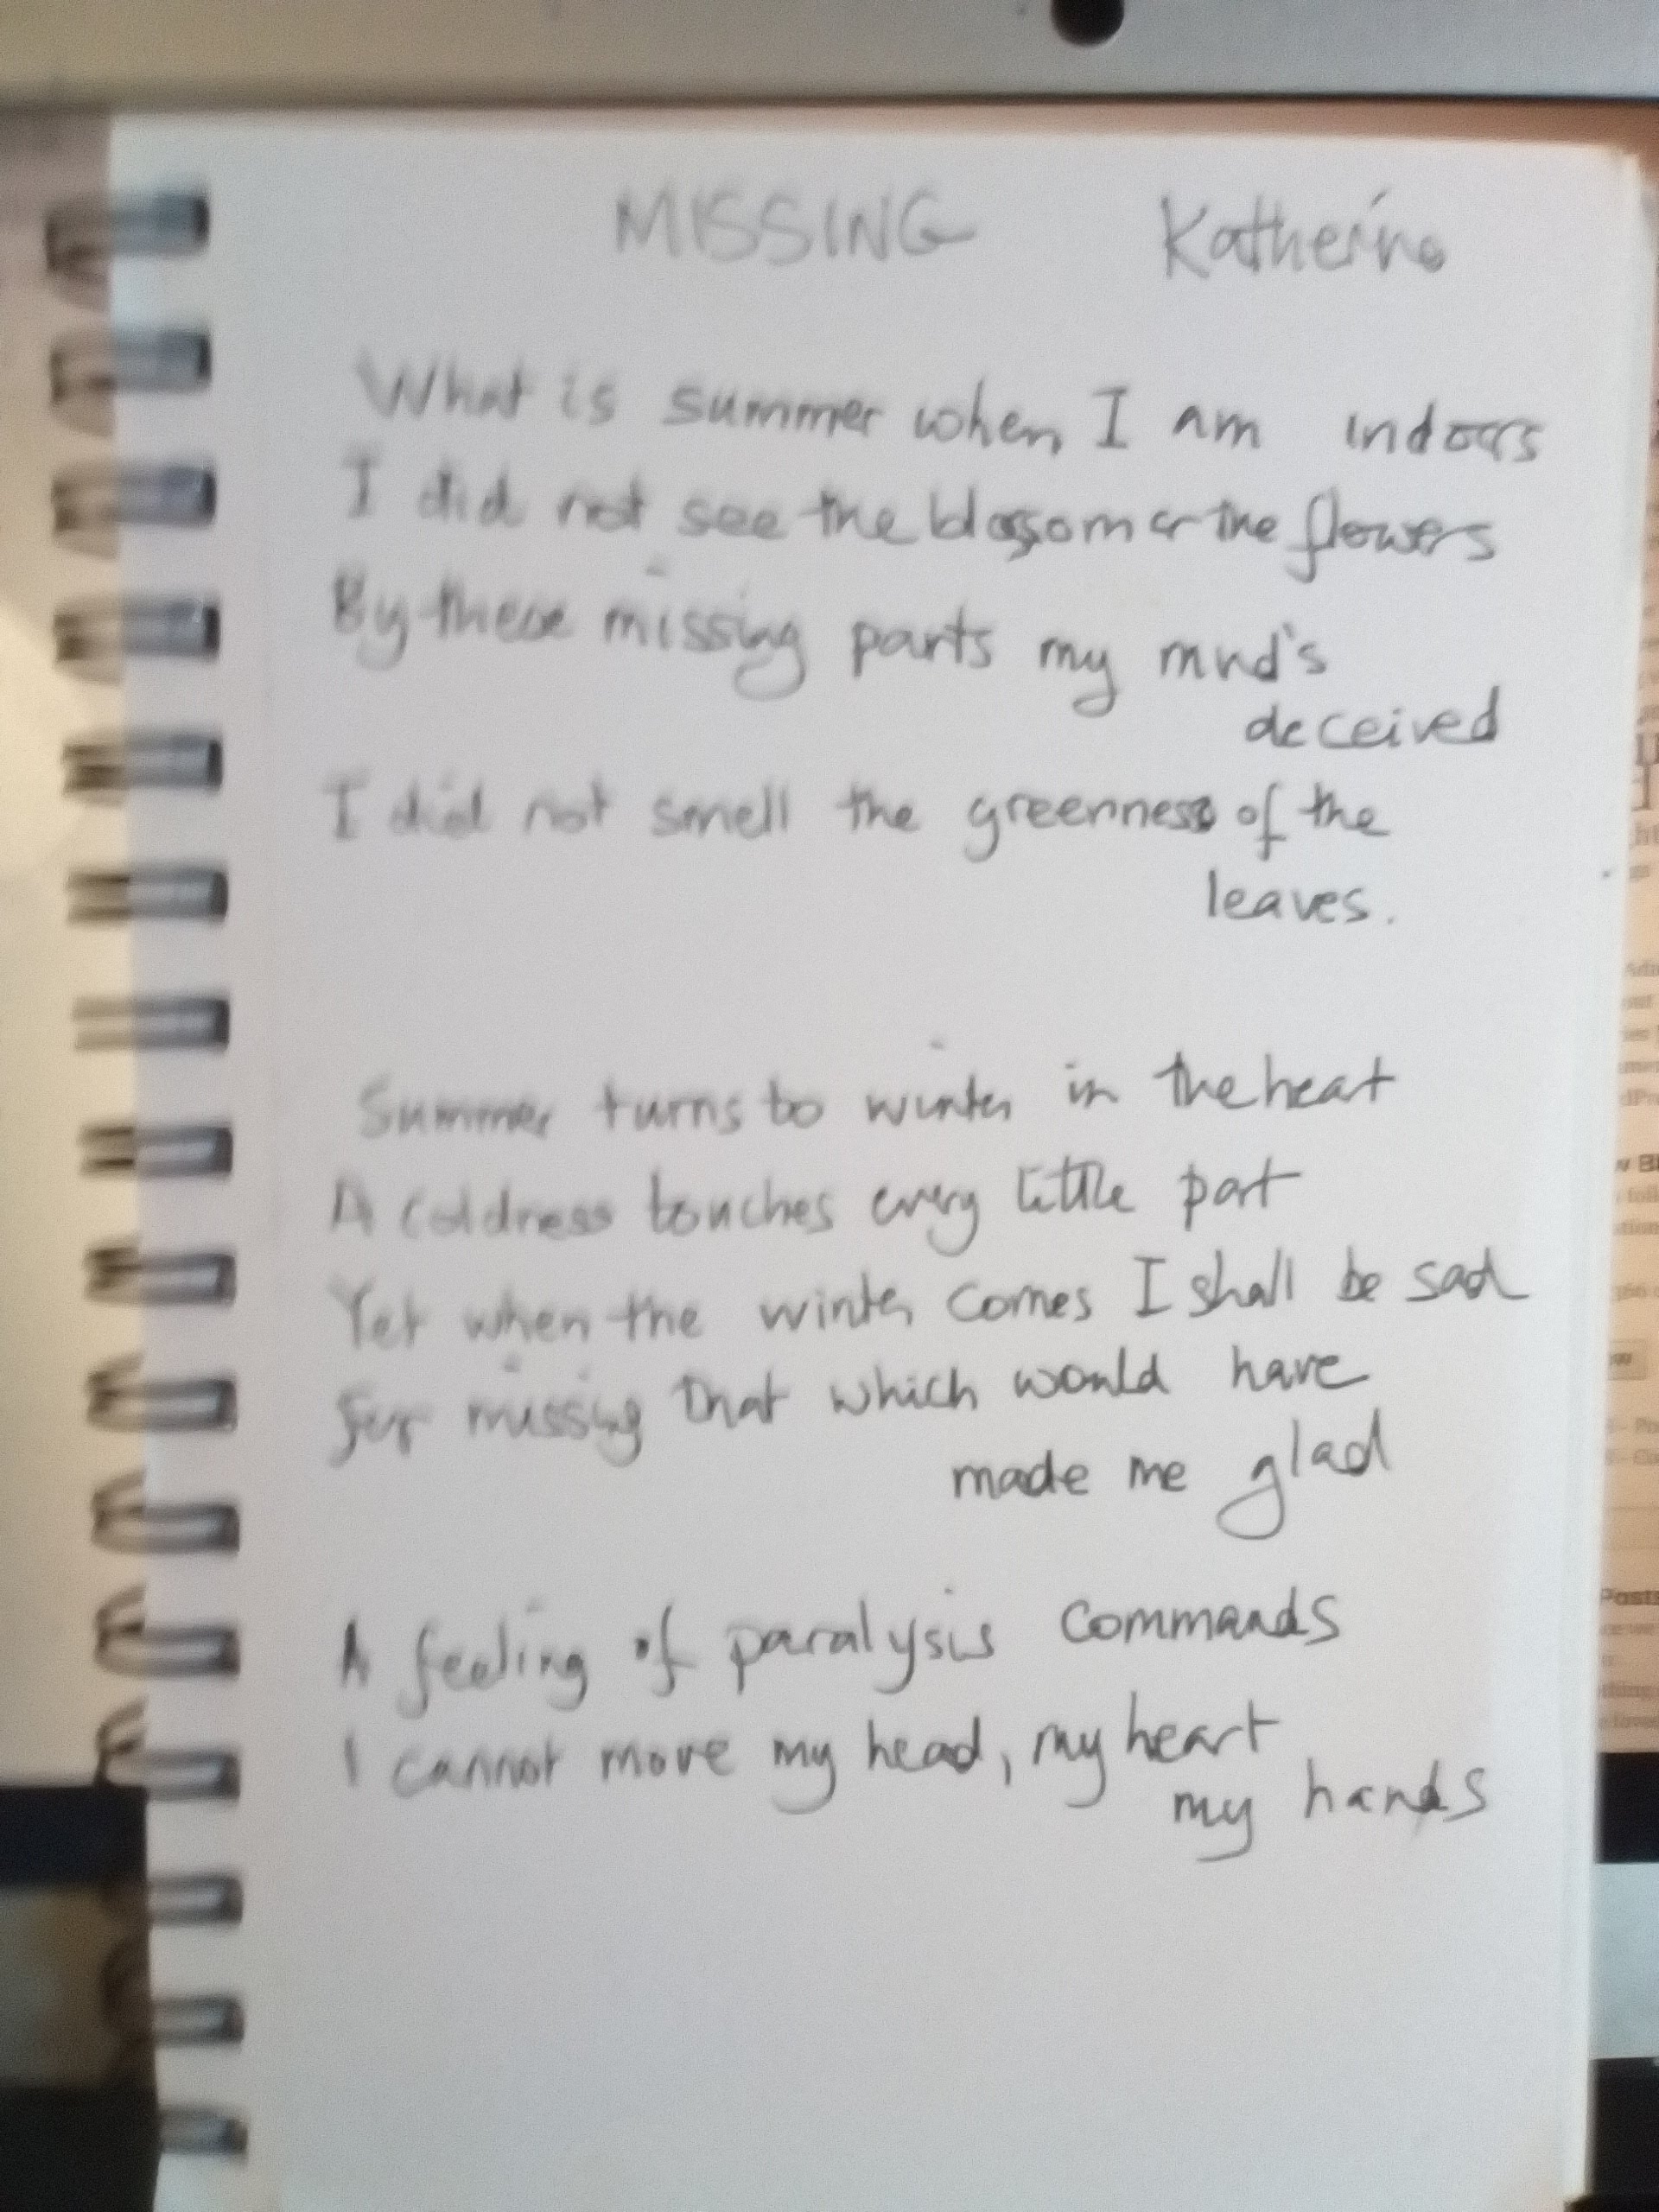 MISSING Katherine
What is summer when I am indoors
I did not see the blossom or the flowers
By these missing parts my mind's
deceived
I did not smell the greenness of the
leaves.
Summer turns to winter in the heat
A coldness touches every little part
Yet when the winter comes I shall be sad
For missing that which would have
made me glad
A feeling of paralysis commands
I cannot move my head, my heart
my hands
Posts